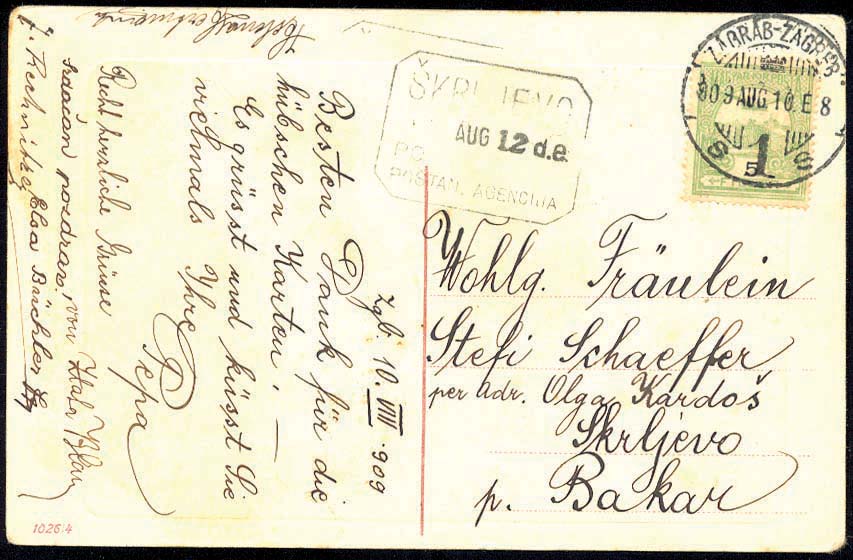 ŠKRLJEVO
AUG 12 d.e.
POŠTAN. AGENCIJA
ZÁGRÁB-ZAGREB
909 AUG 10 E 8
5
1
Zgb. 10. VIII 909
Besten Dank für die
hübschen Karten. —
Es grüsst und küsst Sie
vielmals Ihre
Pepa
Recht herzliche Grüsse
srdačan pozdrav, von Zlata Blau
Elsa Büchler
Wohlg. Fräulein
Stefi Schaeffer
per adr. Olga Kardoš
Skrljevo
p. Bakar
1026:4